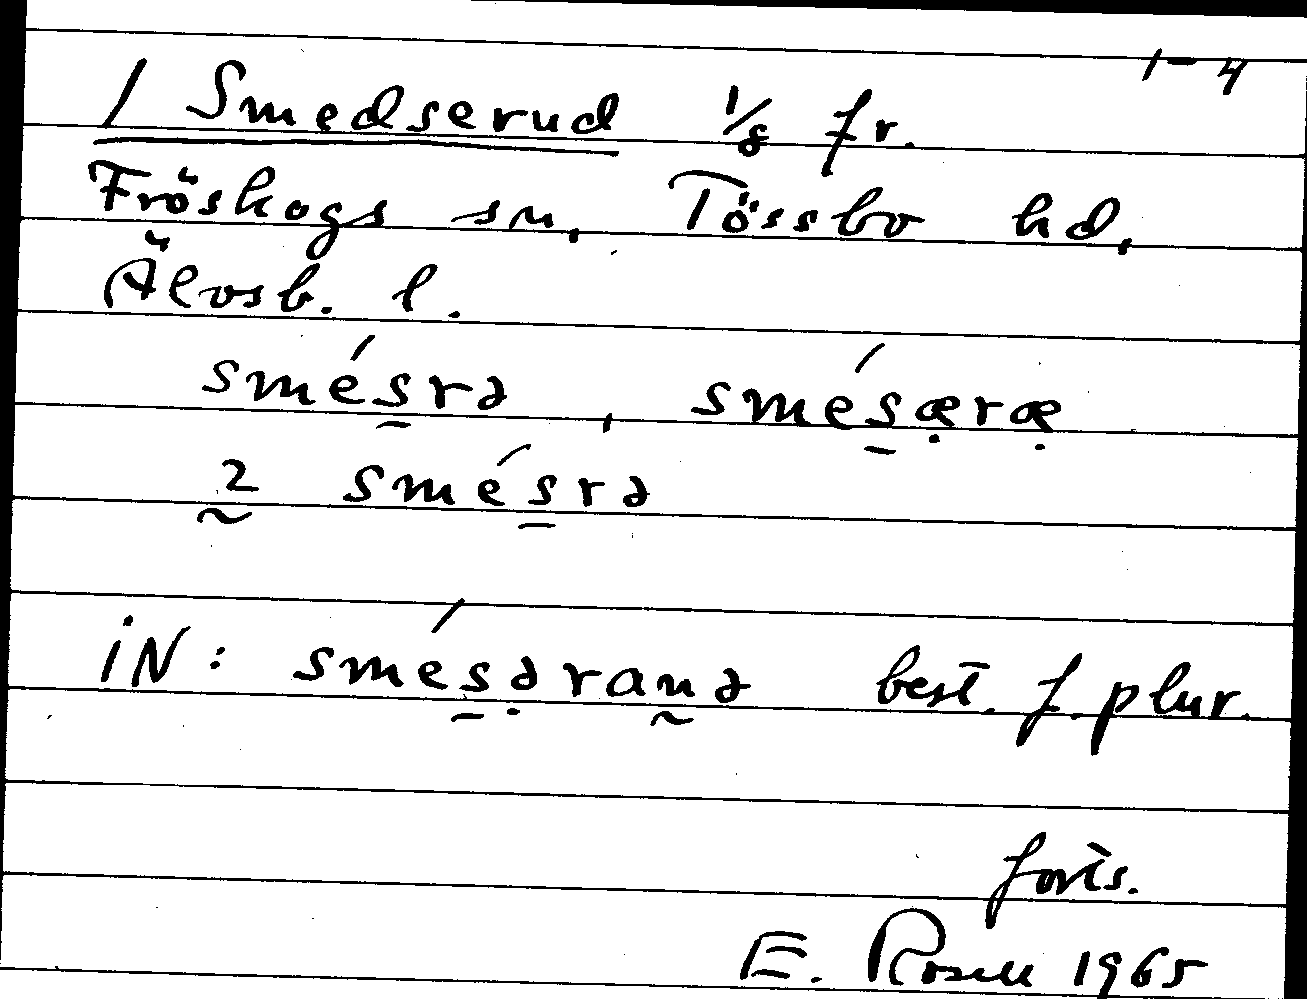 1-4
1 Smedserud 1/8 fr.
Fröskogs sn, Tössbo hd,
Älvsb. l.
smés̠rə, smés̠æ̣ræ̣
2 smés̠rə
iN: smés̠ə̣ran̰ə best. f. plur.
forts.
E. Rosell 1965